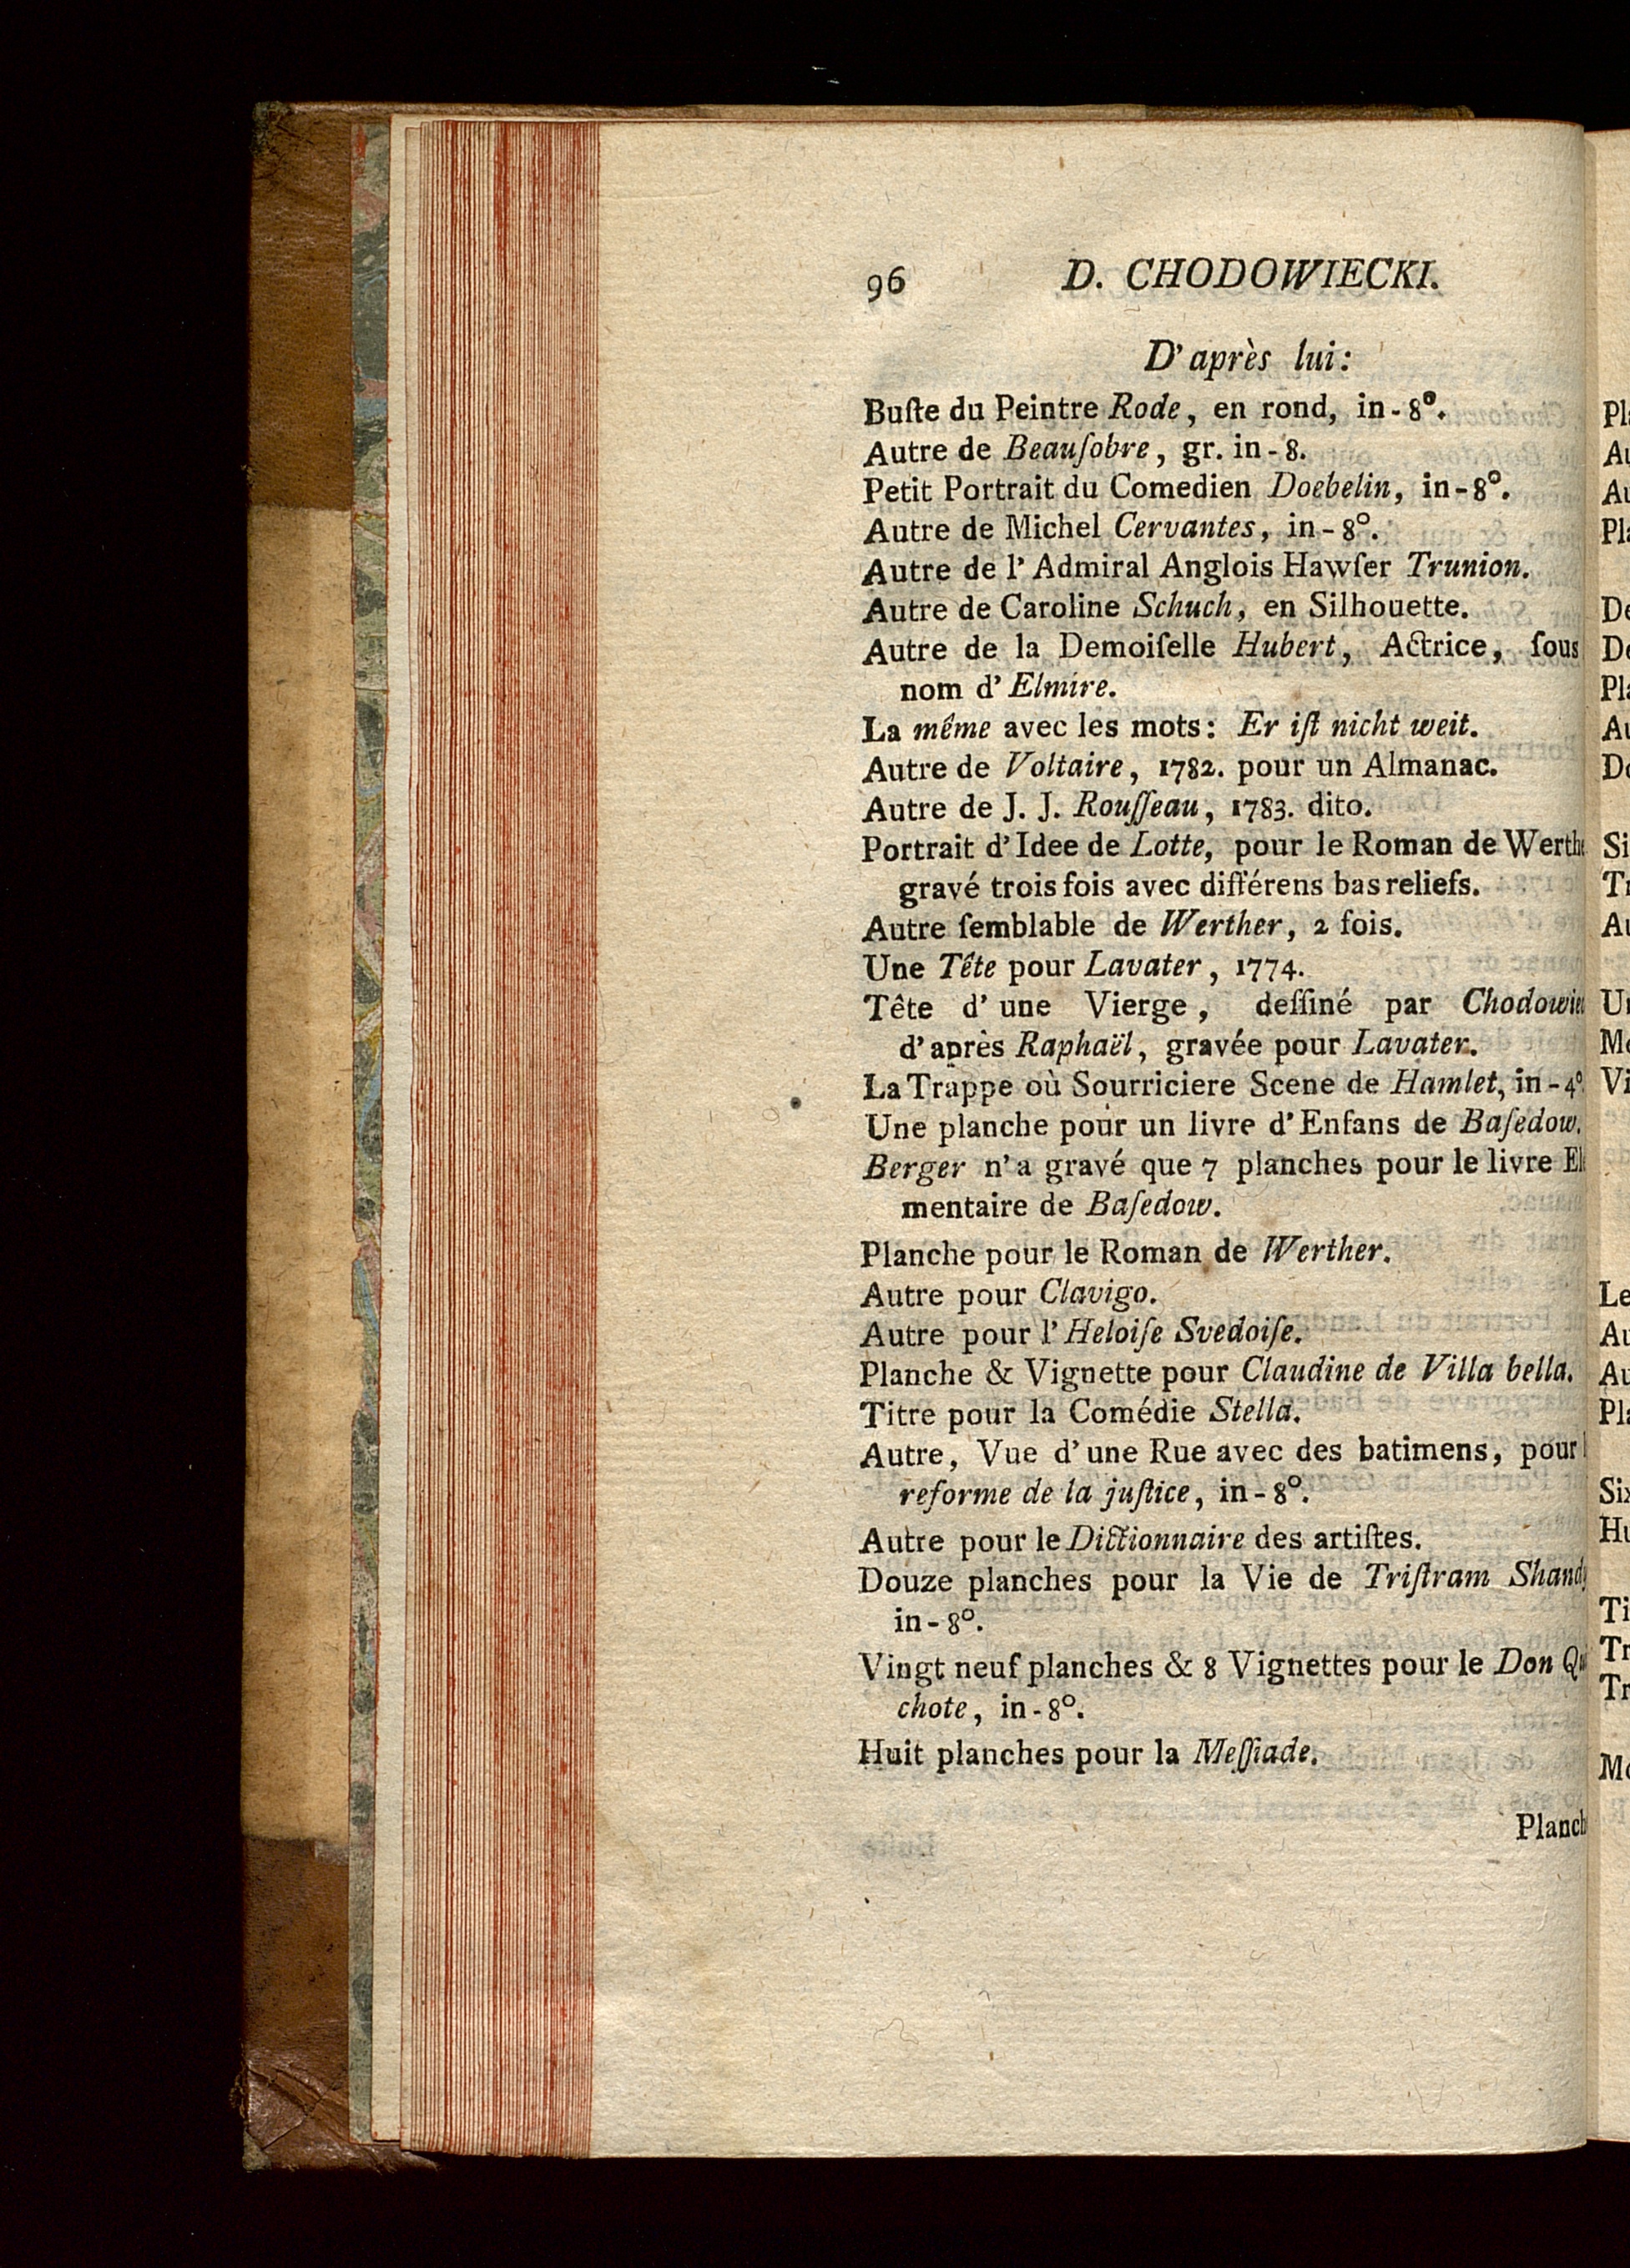 96 D. CHODOWIECKI.
D'après lui:
Buſte du Peintre Rode, en rond, in-8°.
Autre de Beauſobre, gr. in-8.
Petit Portrait du Comedien Doebelin, in-8°.
Autre de Michel Cervantes, in-8°.
Autre de l'Admiral Anglois Hawſer Trunion.
Autre de Caroline Schuch, en Silhouette.
Autre de la Demoiſelle Hubert, Actrice, ſous
nom d'Elmire.
La même avec les mots: Er iſt nicht weit.
Autre de Voltaire, 1782. pour un Almanac.
Autre de J. J. Rouſſeau, 1783. dito.
Portrait d'Idee de Lotte, pour le Roman de Werthe
gravé trois fois avec différens basreliefs.
Autre ſemblable de Werther, 2 fois.
Une Tête pour Lavater, 1774.
Tête d'une Vierge, deſſiné par Chodowie
d'après Raphaël, gravée pour Lavater.
La Trappe où Sourriciere Scene de Hamlet, in-4°.
Une planche pour un livre d'Enfans de Baſedow.
Berger n'a gravé que 7 planches pour le livre Ele
mentaire de Baſedow.
Planche pour le Roman de Werther.
Autre pour Clavigo.
Autre pour l'Heloiſe Svedoiſe.
Planche & Vignette pour Claudine de Villa bella.
Titre pour la Comédie Stella.
Autre, Vue d'une Rue avec des batimens, pour
reforme de la juſtice, in-8°.
Autre pour le Dictionnaire des artiſtes.
Douze planches pour la Vie de Triſtram Shandy
in-8°.
Vingt neuf planches & 8 Vignettes pour le Don Qui
chote, in-8°.
Huit planches pour la Meſſiade.
Planch